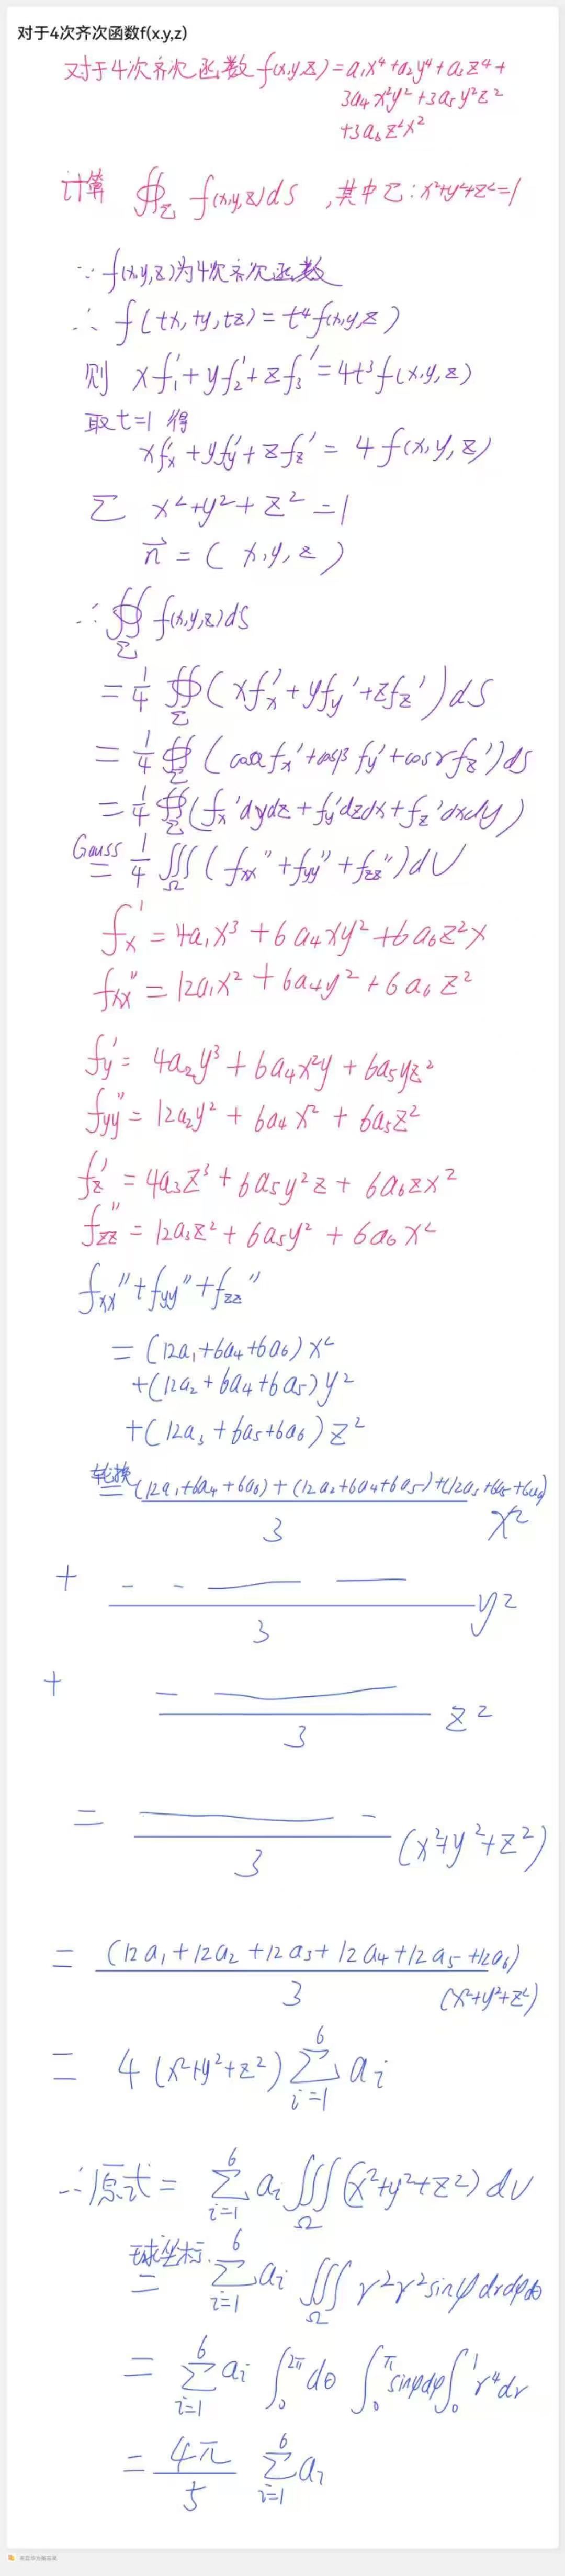 对于4次齐次函数f(x.y,z)
对于4次齐次函数 f(x,y,z)=a₁x⁴+a₂y⁴+a₃z⁴+
3a₄x²y²+3a₅y²z²
+3a₆z²x²
计算 ∯_Σ f(x,y,z)dS ,其中Σ:x²+y²+z²=1
∵ f(x,y,z)为4次齐次函数
∴ f(tx,ty,tz)=t⁴f(x,y,z)
则 xf₁'+yf₂'+zf₃'=4t³f(x,y,z)
取t=1 得
xfx'+yfy'+zfz'=4f(x,y,z)
Σ x²+y²+z²=1
n⃗=(x,y,z)
∴ ∯_Σ f(x,y,z)dS
=1/4 ∯_Σ (xfx'+yfy'+zfz')dS
=1/4 ∯_Σ (cosα fx'+cosβ fy'+cosγ fz')dS
=1/4 ∯_Σ (fx'dydz+fy'dzdx+fz'dxdy)
Gauss
= 1/4 ∭_Ω (fxx''+fyy''+fzz'')dV
fx'=4a₁x³+6a₄xy²+6a₆z²x
fxx''=12a₁x²+6a₄y²+6a₆z²
fy'=4a₂y³+6a₄x²y+6a₅yz²
fyy''=12a₂y²+6a₄x²+6a₅z²
fz'=4a₃z³+6a₅y²z+6a₆zx²
fzz''=12a₃z²+6a₅y²+6a₆x²
fxx''+fyy''+fzz''
=(12a₁+6a₄+6a₆)x²
+(12a₂+6a₄+6a₅)y²
+(12a₃+6a₅+6a₆)z²
轮换
= (12a₁+6a₄+6a₆)+(12a₂+6a₄+6a₅)+(12a₃+6a₅+6a₆)
3 x²
+ y²
3
+ z²
3
= (x²+y²+z²)
3
= (12a₁+12a₂+12a₃+12a₄+12a₅+12a₆)
3 (x²+y²+z²)
= 4(x²+y²+z²) ∑_{i=1}^{6} aᵢ
∴原式= ∑_{i=1}^{6} aᵢ ∭_Ω (x²+y²+z²)dV
球坐标
= ∑_{i=1}^{6} aᵢ ∭_Ω r²r²sinφdrdφdθ
= ∑_{i=1}^{6} aᵢ ∫₀^{2π}dθ ∫₀^π sinφdφ ∫₀¹ r⁴dr
= 4π/5 ∑_{i=1}^{6} aᵢ